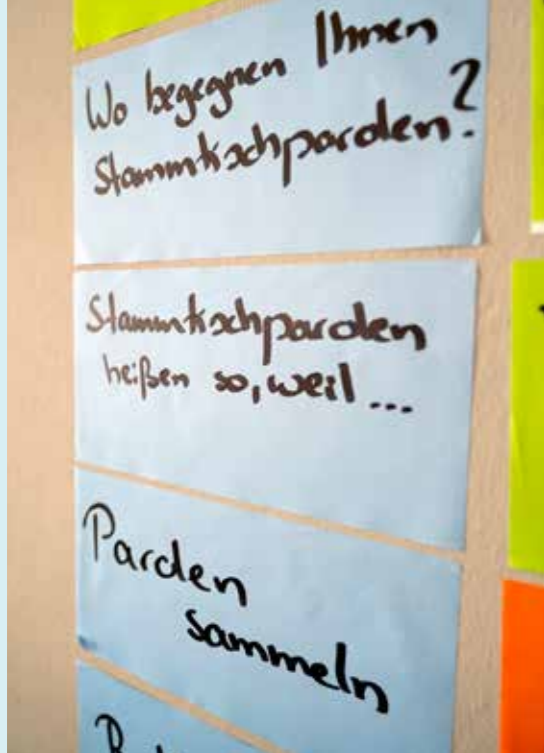 Wo begegnen Ihnen
Stammtischparolen?
Stammtischparolen
heißen so, weil ...
Parolen
sammeln